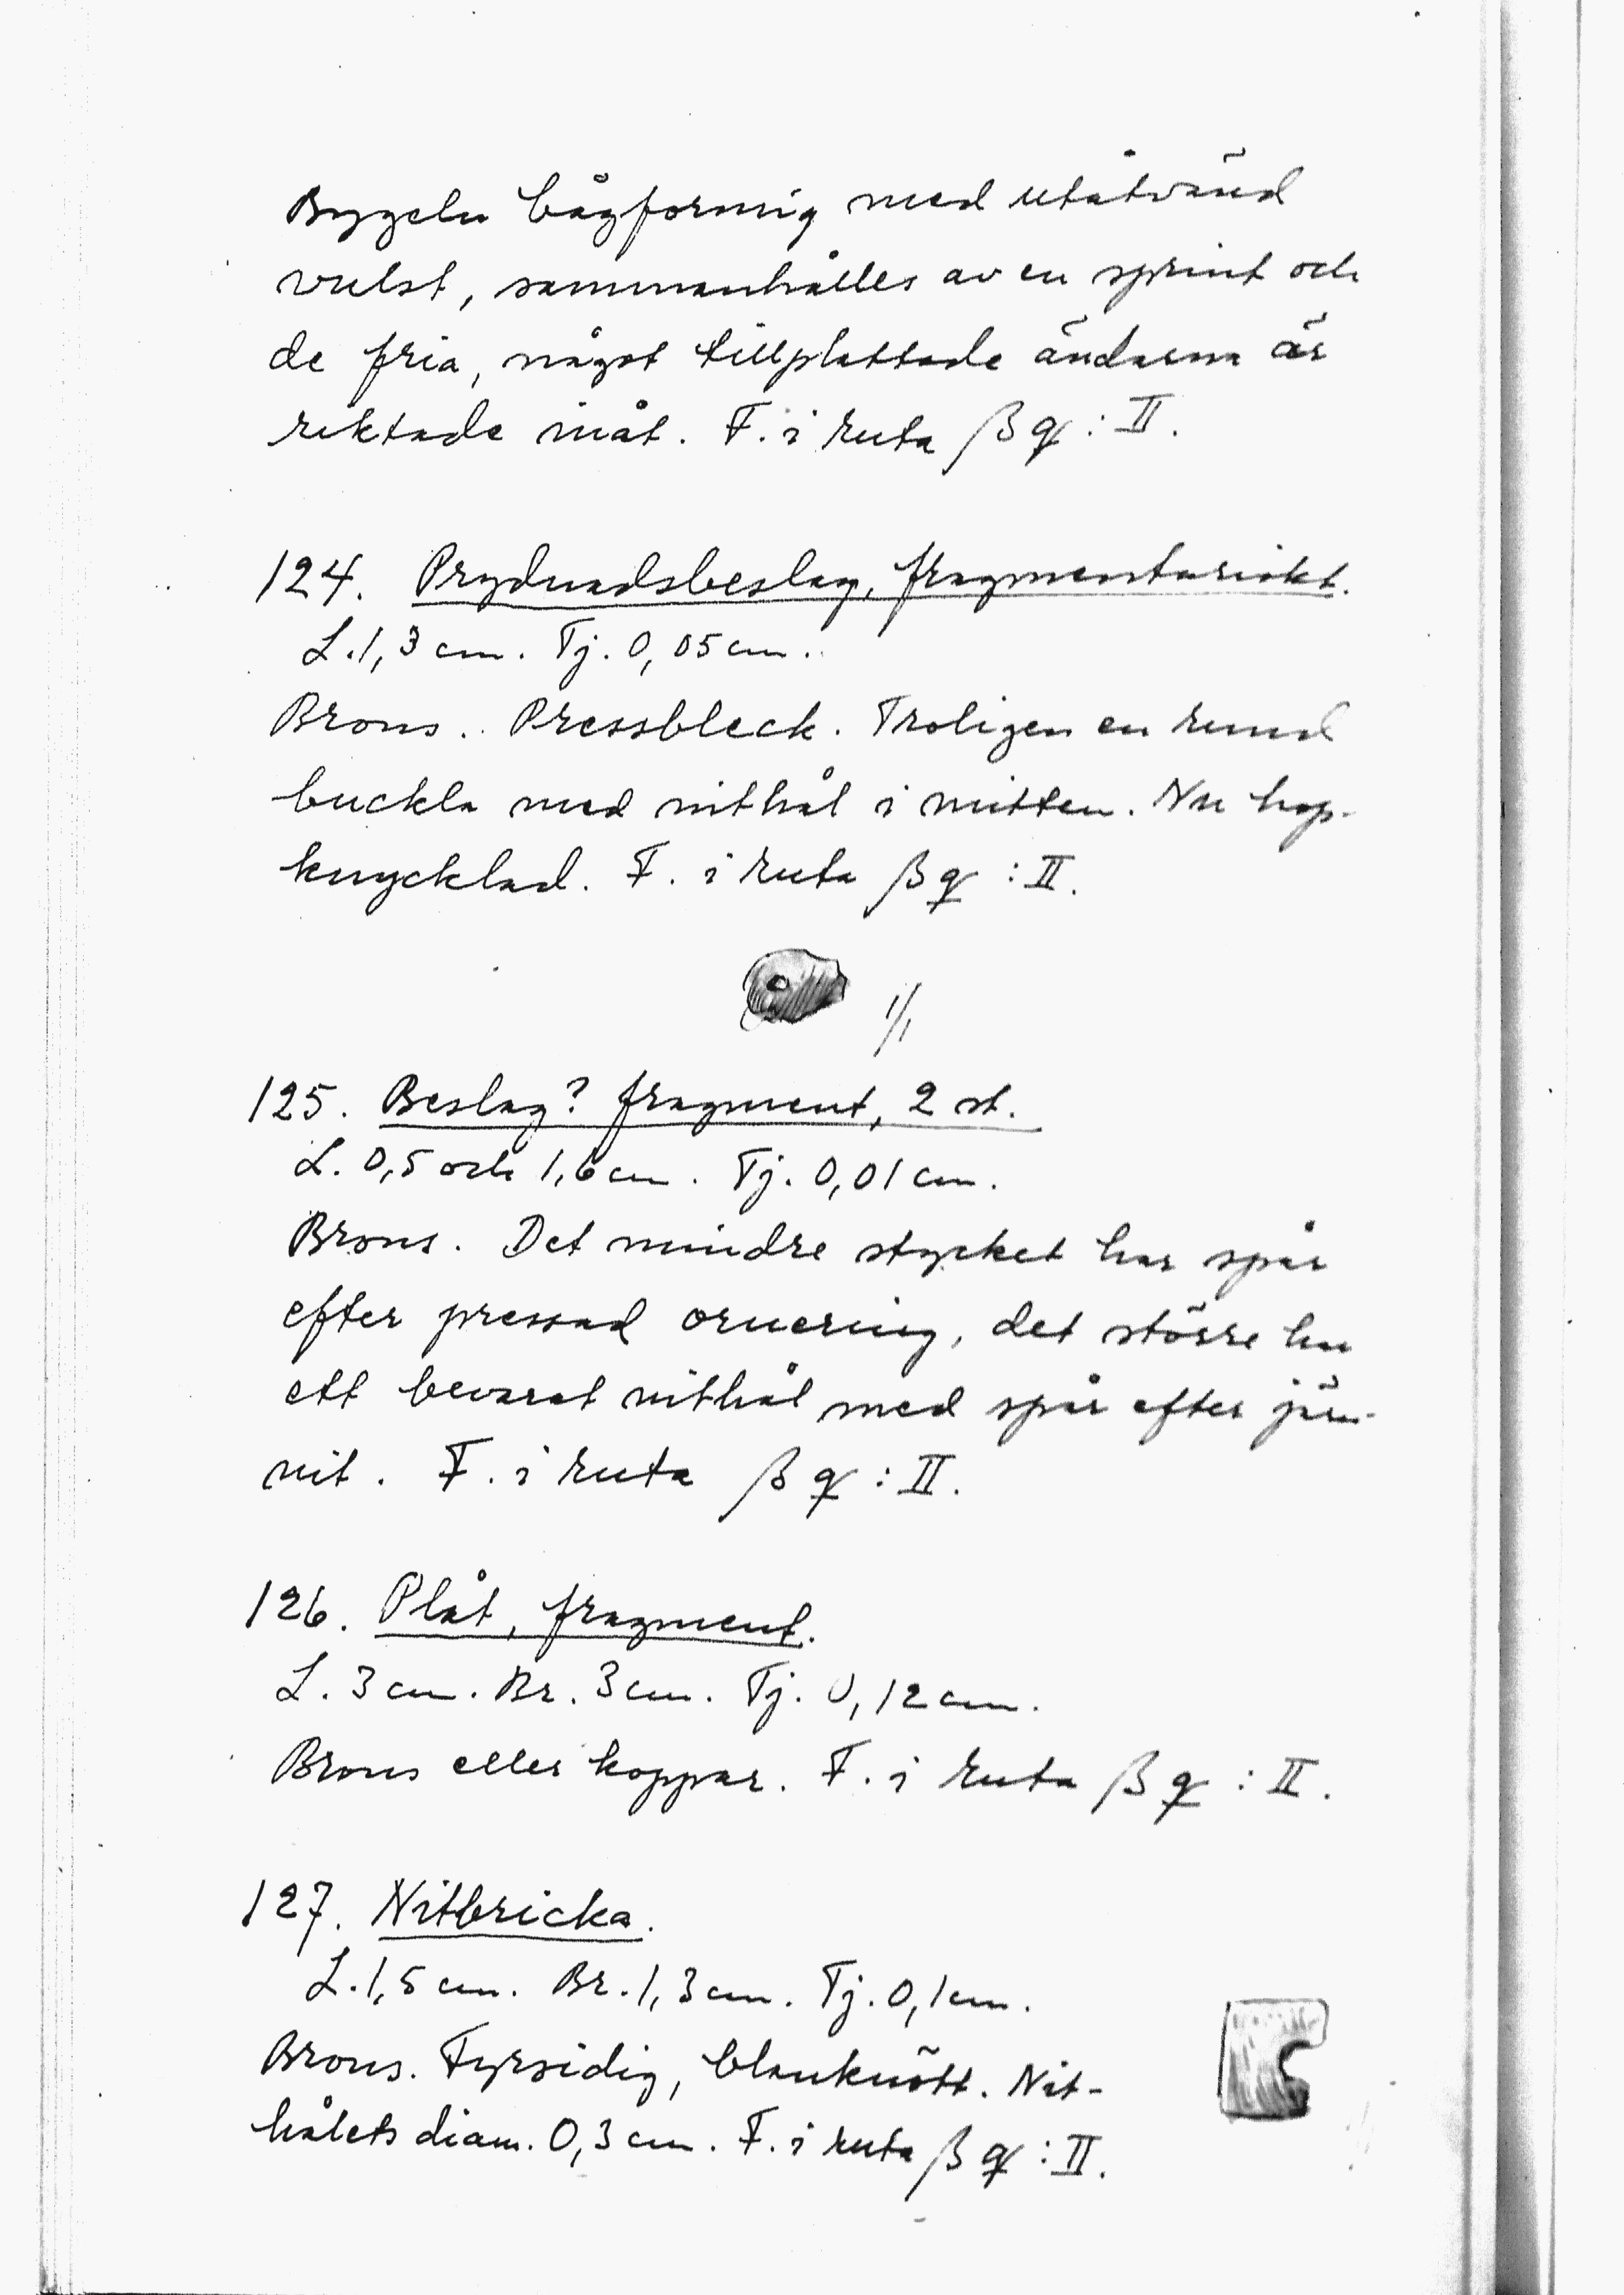 Bygeln bågformig med utåtvänd
vulst, sammanhålles av en sprint och
de fria, något tillplattade ändarna är
riktade inåt. F. i ruta β q : II.
124. Prydnadsbeslag, fragmentariskt.
L. 1,3 cm. Tj. 0,05 cm.
Brons. Pressbleck. Troligen en rund
buckla med nithål i mitten. Nu hop-
knycklad. F. i ruta β q : II.
1/1
125. Beslag? fragment, 2 st.
L. 0,5 och 1,6 cm. Tj. 0,01 cm.
Brons. Det mindre stycket har spår
efter pressad ornering, det större har
ett bevarat nithål med spår efter järn-
nit. F. i ruta β q : II.
126. Plåt, fragment.
L. 3 cm. Br. 3 cm. Tj. 0,12 cm.
Brons eller koppar. F. i ruta β q : II.
127. Nitbricka.
L. 1,5 cm. Br. 1,3 cm. Tj. 0,1 cm.
Brons. Fyrsidig, blanknött. Nit-
hålets diam. 0,3 cm. F. i ruta β q : II.